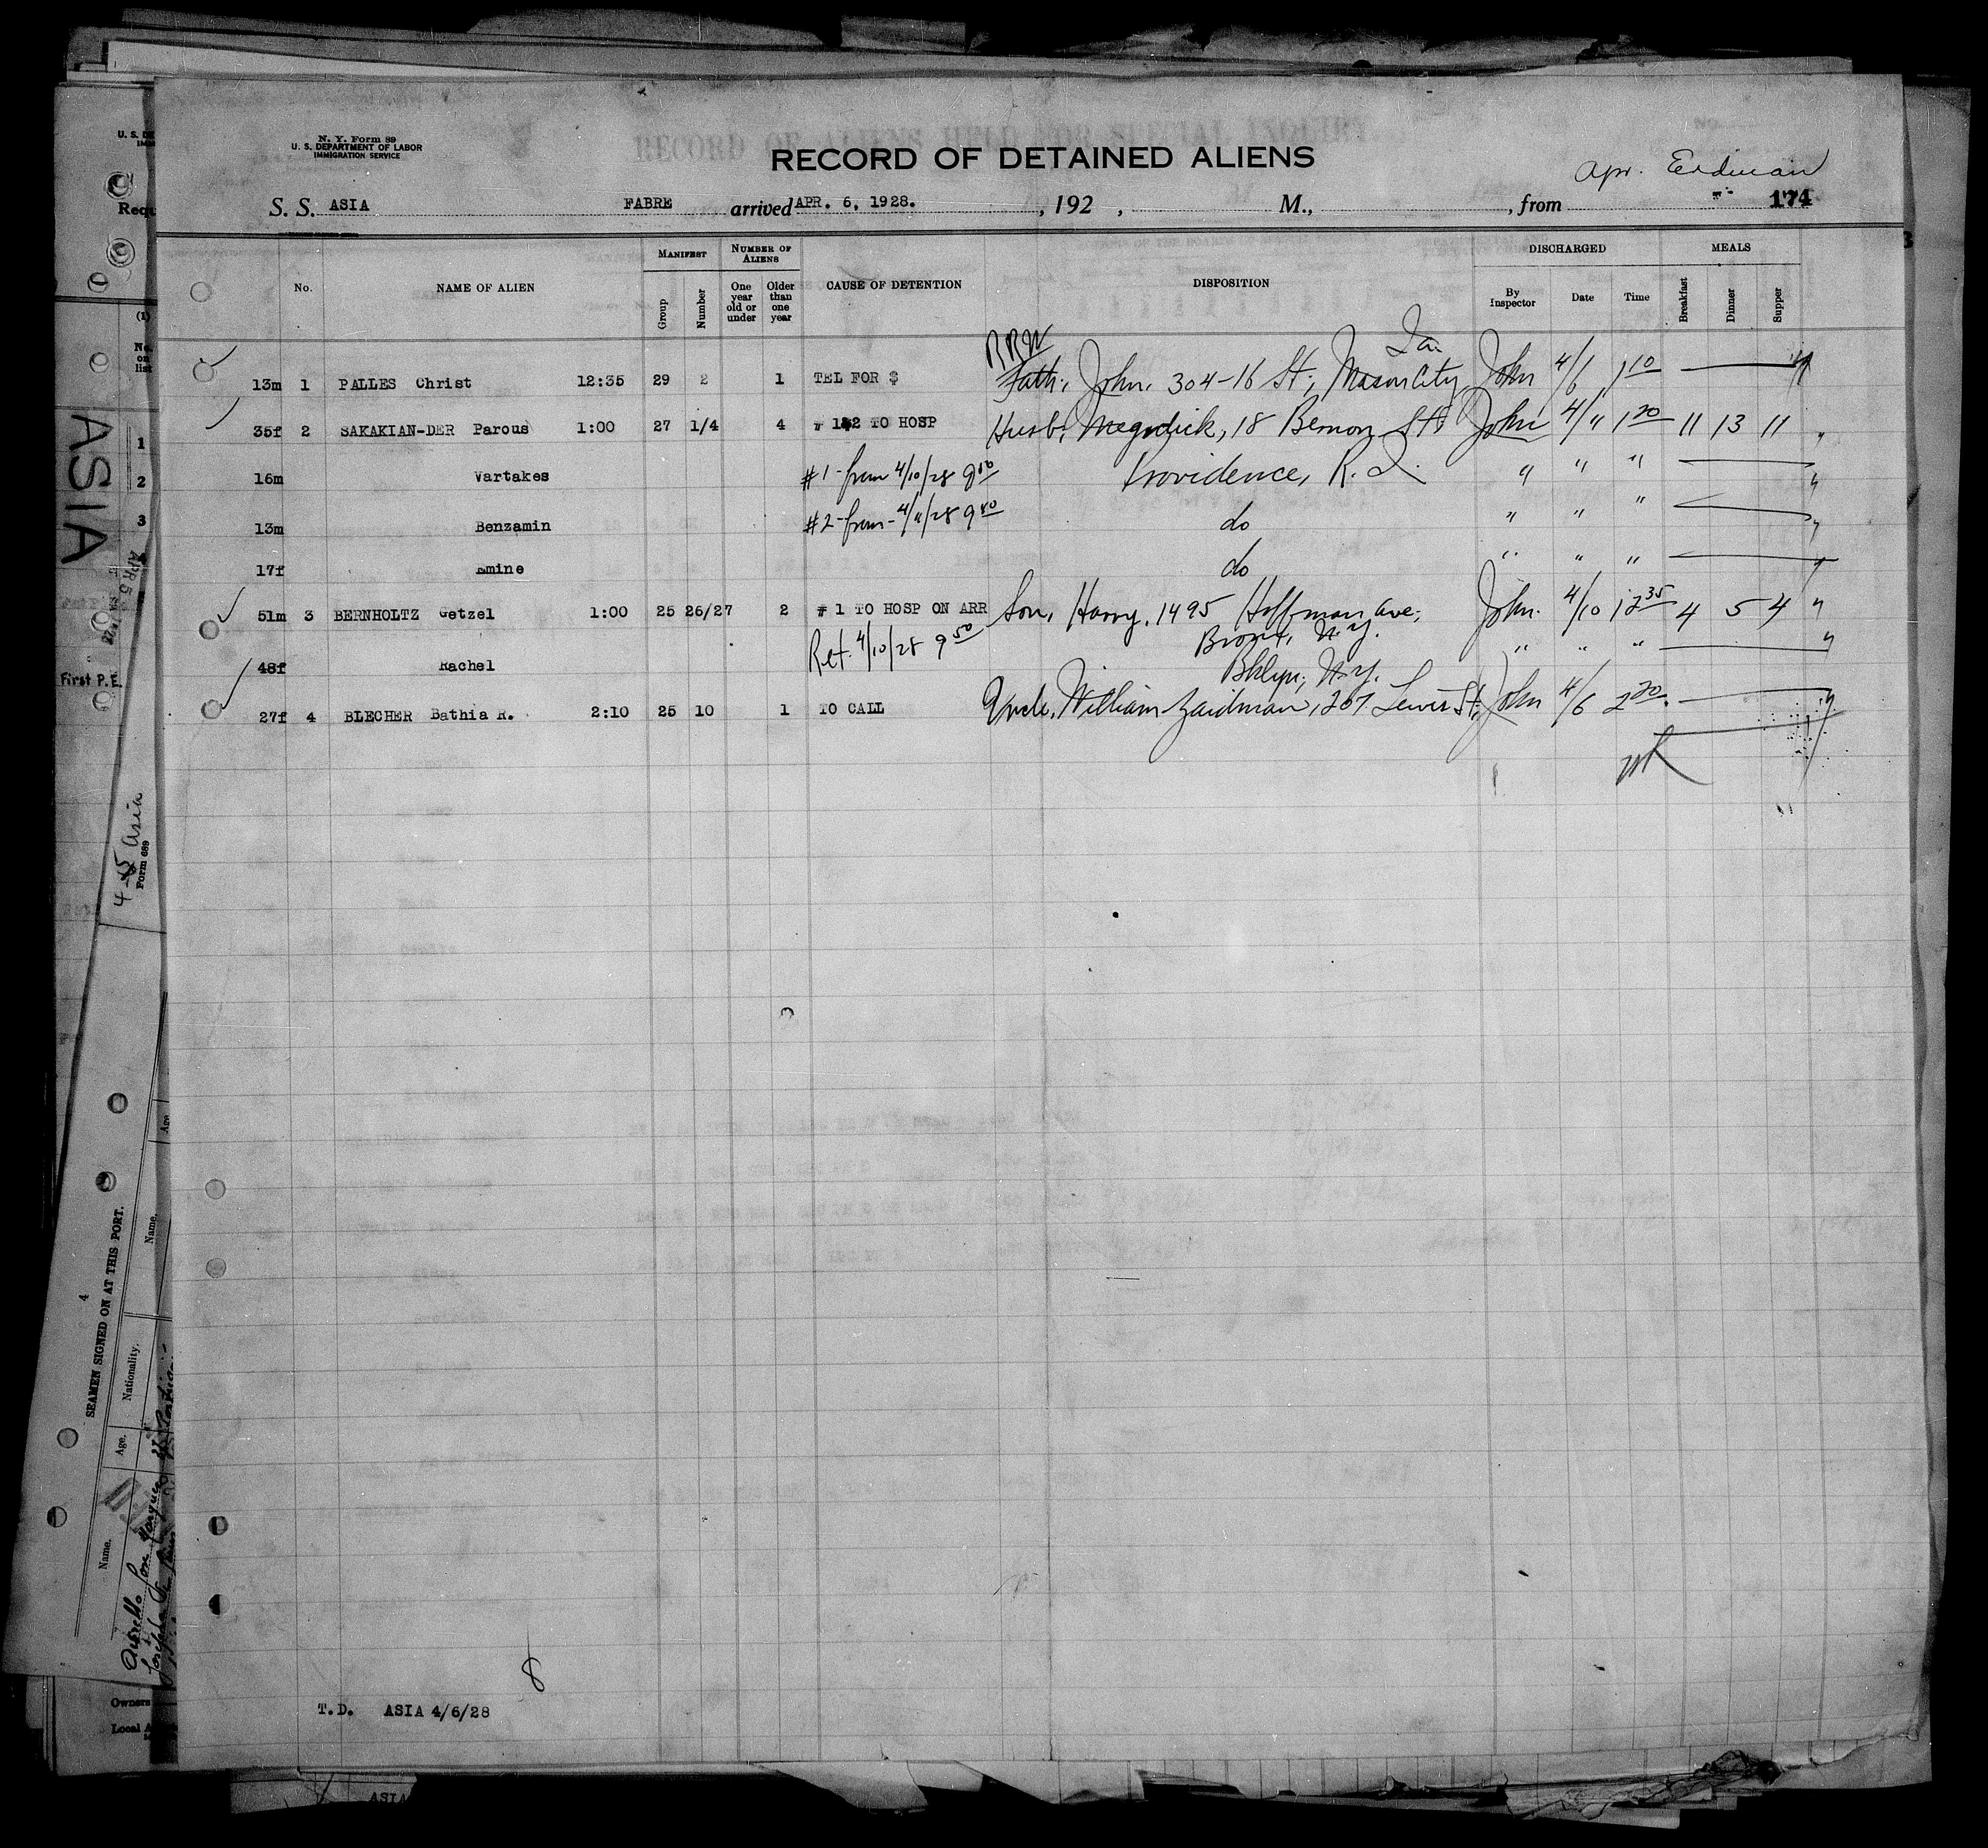 N. Y. Form 89
U. S. DEPARTMENT OF LABOR
IMMIGRATION SERVICE
RECORD OF ALIENS HELD FOR SPECIAL INQUIRY
RECORD OF DETAINED ALIENS
Apr. Erdman
S. S. ASIA FABRE arrived APR. 6, 1928. , 192 , M., , from 174
MANIFEST NUMBER OF ALIENS DISCHARGED MEALS
No. NAME OF ALIEN Group Number One year old or under Older than one year CAUSE OF DETENTION DISPOSITION By Inspector Date Time Breakfast Dinner Supper
Ia.
13m 1 PALLES Christ 12:35 29 2 1 TEL FOR $ Fath; John. 304-16 St; Mason City John 4/6 1 10
35f 2 SAKAKIAN-DER Parous 1:00 27 1/4 4 # 1&2 TO HOSP Husb; Megrdick, 18 Bernon St; John 4/11 1 20 11 13 11 "
16m Vartakes #1-from 4/10/28 9 50 Providence, R. I. " " " "
13m Benzamin #2-from-4/11/28 9 50 do " " " "
17f Emine do " " " "
51m 3 BERNHOLTZ Getzel 1:00 25 26/27 2 # 1 TO HOSP ON ARR Son, Harry, 1495 Hoffman Ave; John. 4/10 12 35 4 5 4 "
Ret. 4/10/28 9 50 Bronx, N.Y.
48f Rachel " " " "
Bklyn; N.Y.
27f 4 BLECHER Bathia R. 2:10 25 10 1 TO CALL Uncle, William Zaidman, 267 Lewis St; John 4/6 2 20. "
8
T.D. ASIA 4/6/28
ASIA
First P.E.
4-5 Asia
Form 689
4
SEAMEN SIGNED ON AT THIS PORT.
Name. Age. Nationality. Name. Age
Owners
Local A
ASIA